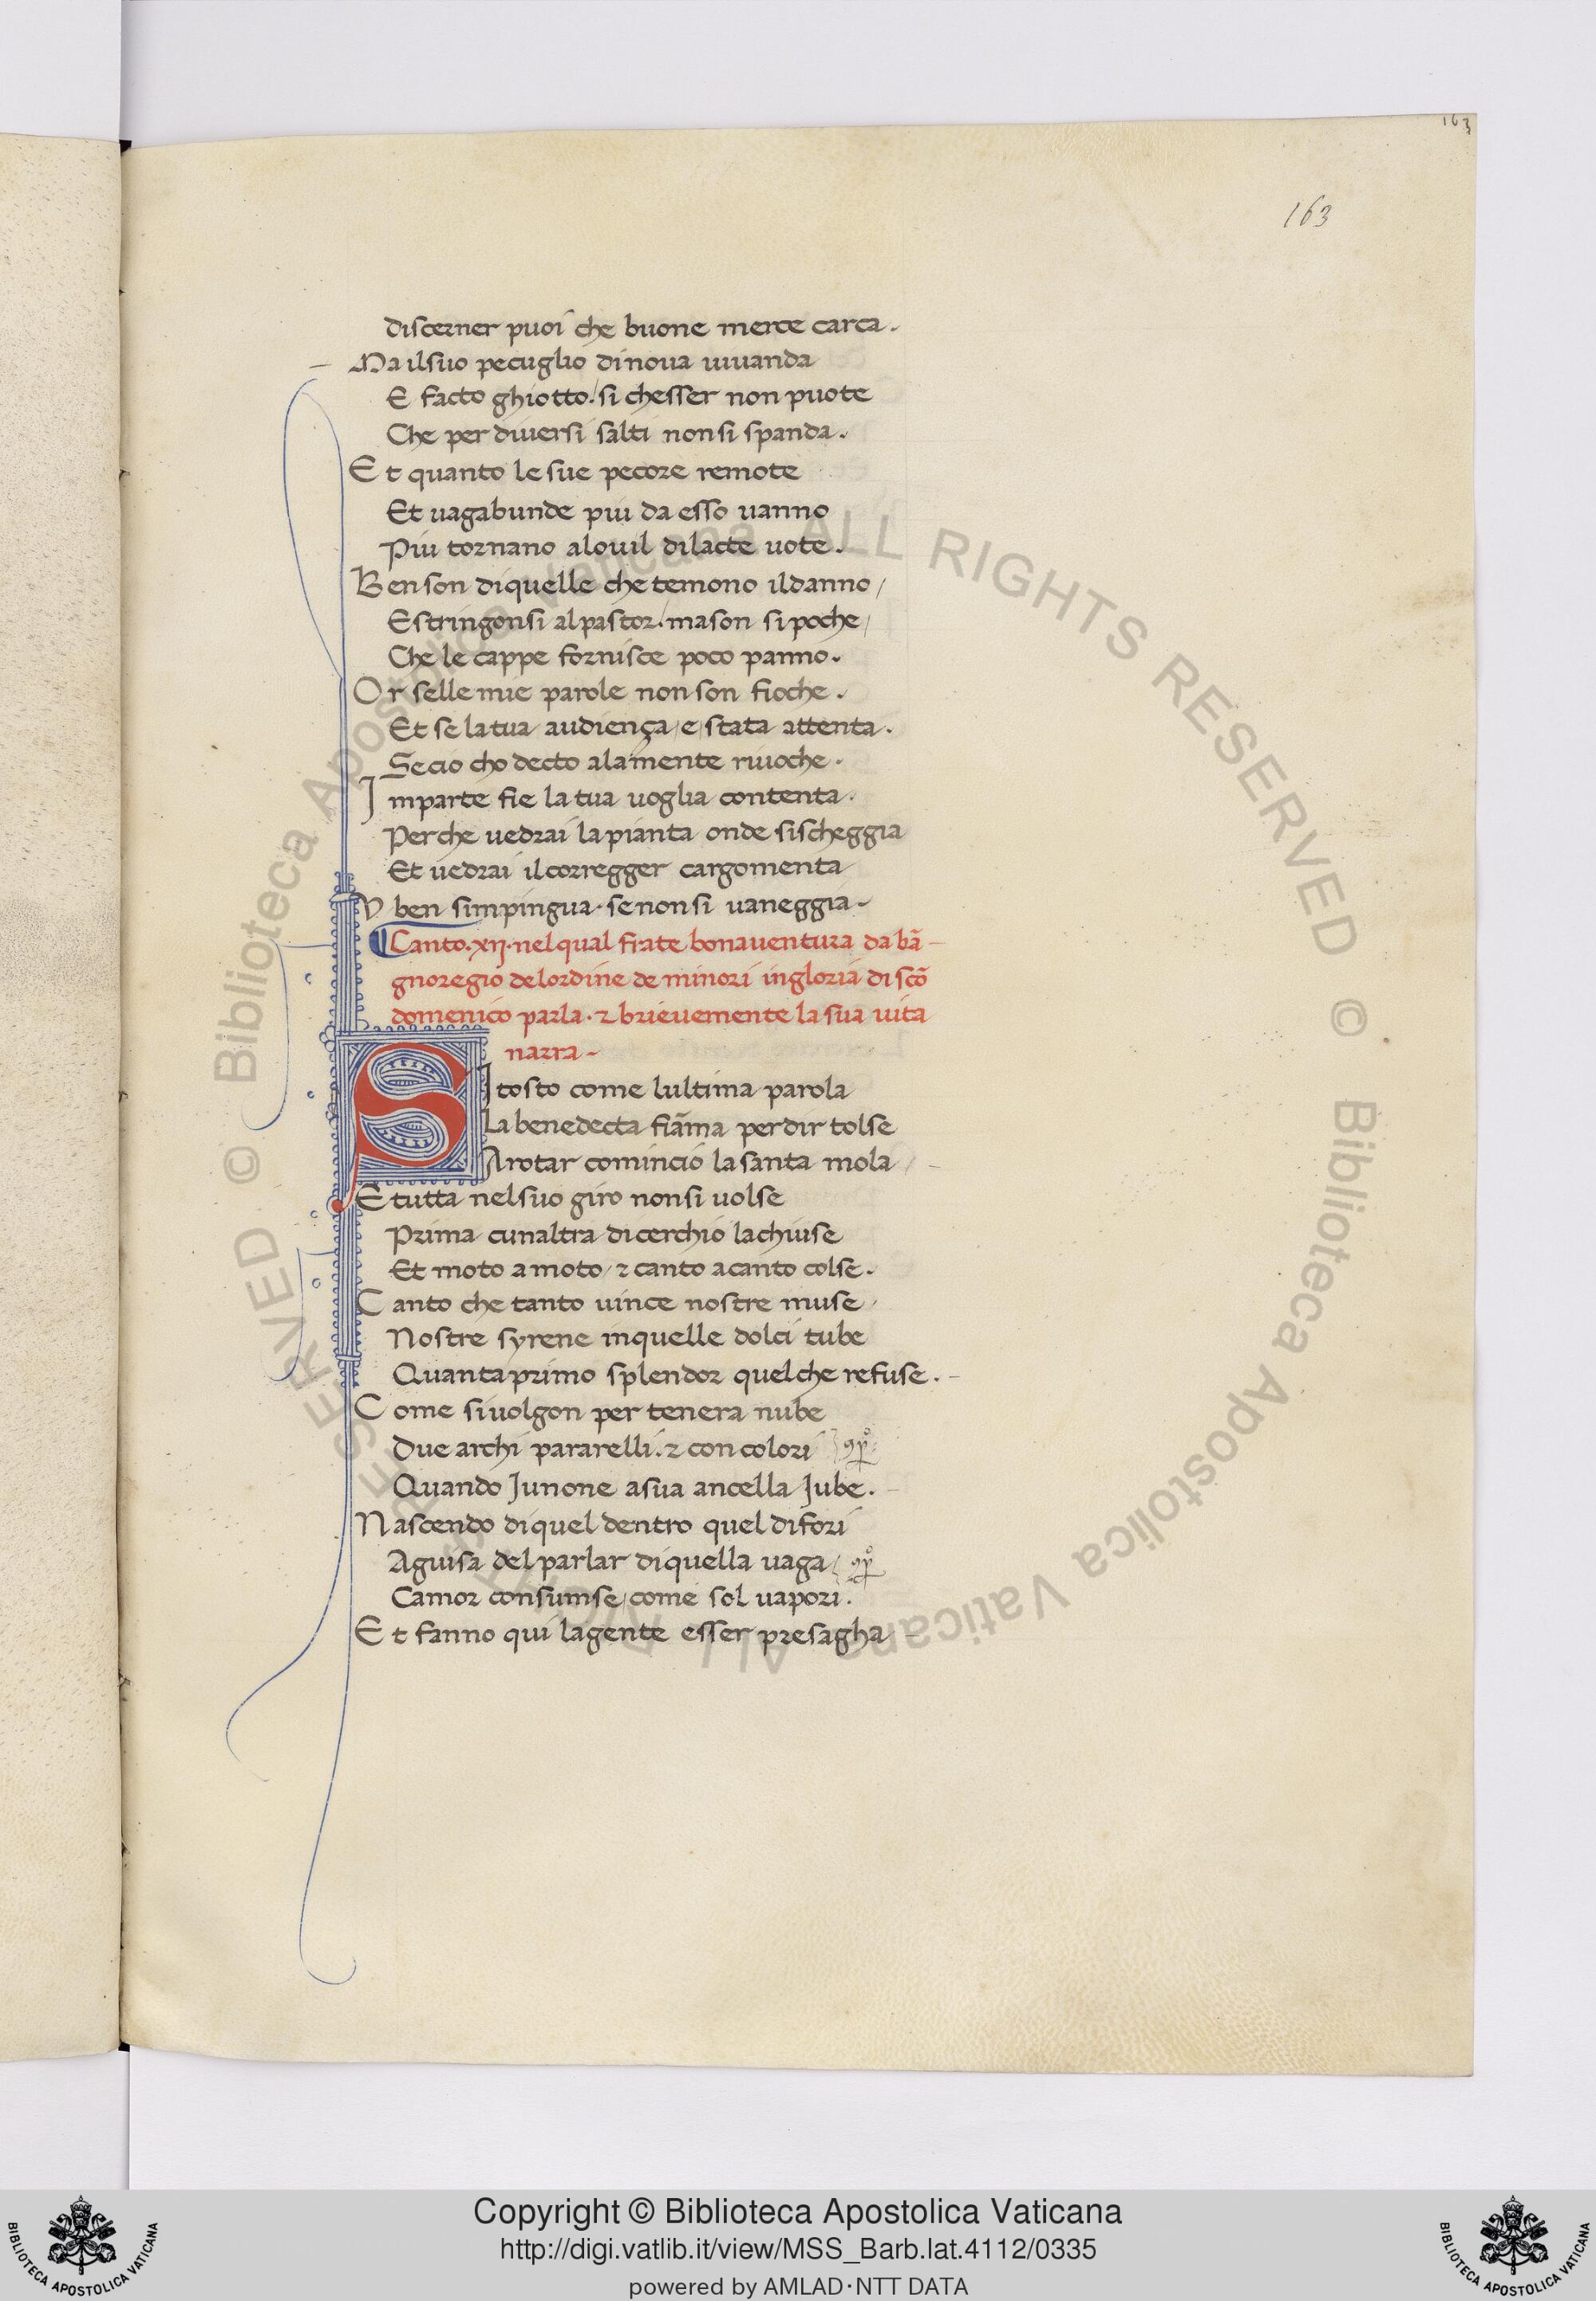 163
163
discerner puoi che buone merce carca.
Ma ilsuo pecuglio dinoua uiuanda
E facto ghiotto./si chesser non puote
Che per diuersi salti nonsi spanda.
Et quanto le sue pecore remote
Et uagabunde piu da esso uanno
Piu tornano alouil dilacte uote.
Ben son diquelle che temono ildanno/
Estringonsi alpastor./mason si poche/
Che le cappe fornisce poco panno.
Or selle mie parole non son fioche.
Et se latua audiença/e/stata attenta.
Secio cho decto alamente riuoche.
Imparte fie la tua uoglia contenta.
Perche uedrai lapianta onde sischeggia
Et uedrai ilcorregger cargomenta
V ben simpingua. senonsi uaneggia-
Canto.xij.nelqual frate bonauentura da bã-
gnoregio delordine de minori ingloria di scõ
domenico parla. ⁊ brieuemente la sua uita
narra-
SI tosto come lultima parola
La benedecta fiãma perdir tolse
Arotar comincio lasanta mola/
E tutta nelsuo giro nonsi uolse
Prima cunaltra dicerchio lachiuse
Et moto amoto/⁊ canto acanto colse.
Canto che tanto uince nostre muse/
Nostre syrene inquelle dolci tube
Quanta primo splendor quelche refuse.
Come siuolgon per tenera nube
Due archi pararelli.⁊ con colori
Quando Junone asua ancella Jube.
Nascendo diquel dentro quel difori
Aguisa del parlar diquella uaga/
Camor consumse/come sol uapori.
Et fanno qui lagente esser presagha
© Biblioteca Apostolica Vaticana ALL RIGHTS RESERVED © Biblioteca Apostolica Vaticana ALL RIGHTS RESERVED
Copyright © Biblioteca Apostolica Vaticana
http://digi.vatlib.it/view/MSS_Barb.lat.4112/0335
powered by AMLAD·NTT DATA
BIBLIOTECA APOSTOLICA VATICANA
BIBLIOTECA APOSTOLICA VATICANA